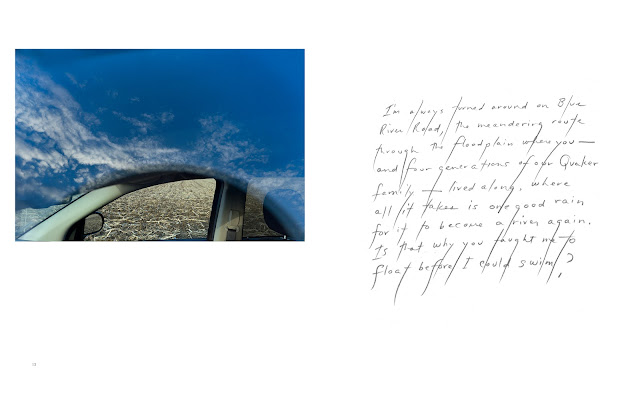 I'm always turned around on Blue
River Road, the meandering route
through the floodplain where you —
and four generations of our Quaker
family — lived along, where
all it takes is one good rain
for it to become a river again.
Is that why you taught me to
float before I could swim?